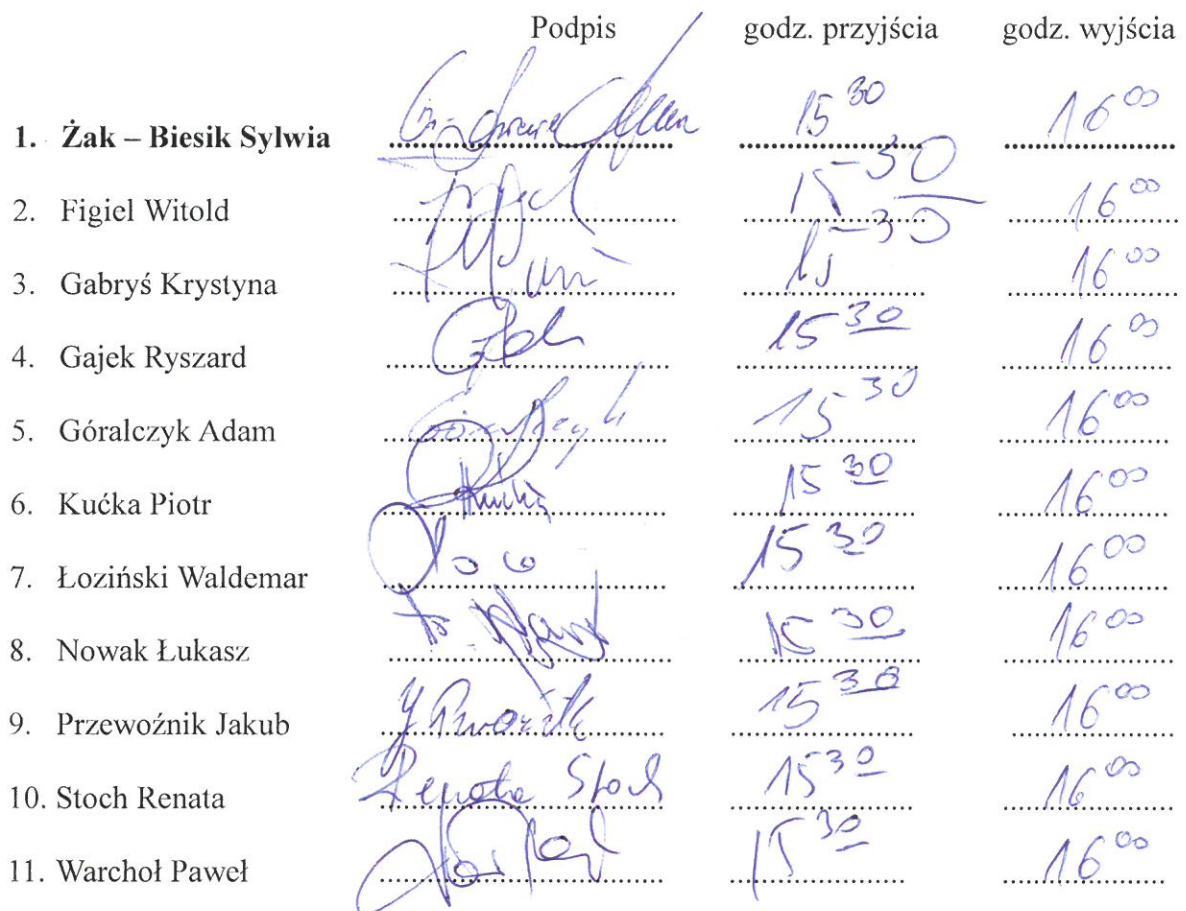 Podpis godz. przyjścia godz. wyjścia
1. Żak – Biesik Sylwia 15 30 16 00
2. Figiel Witold 15-30 16 00
3. Gabryś Krystyna 15-30 16 00
4. Gajek Ryszard 15 30 16 00
5. Góralczyk Adam 15 30 16 00
6. Kućka Piotr 15 30 16 00
7. Łoziński Waldemar 15 30 16 00
8. Nowak Łukasz 15 30 16 00
9. Przewoźnik Jakub 15 30 16 00
10. Stoch Renata Renata Stoch 15 30 16 00
11. Warchoł Paweł 15 30 16 00